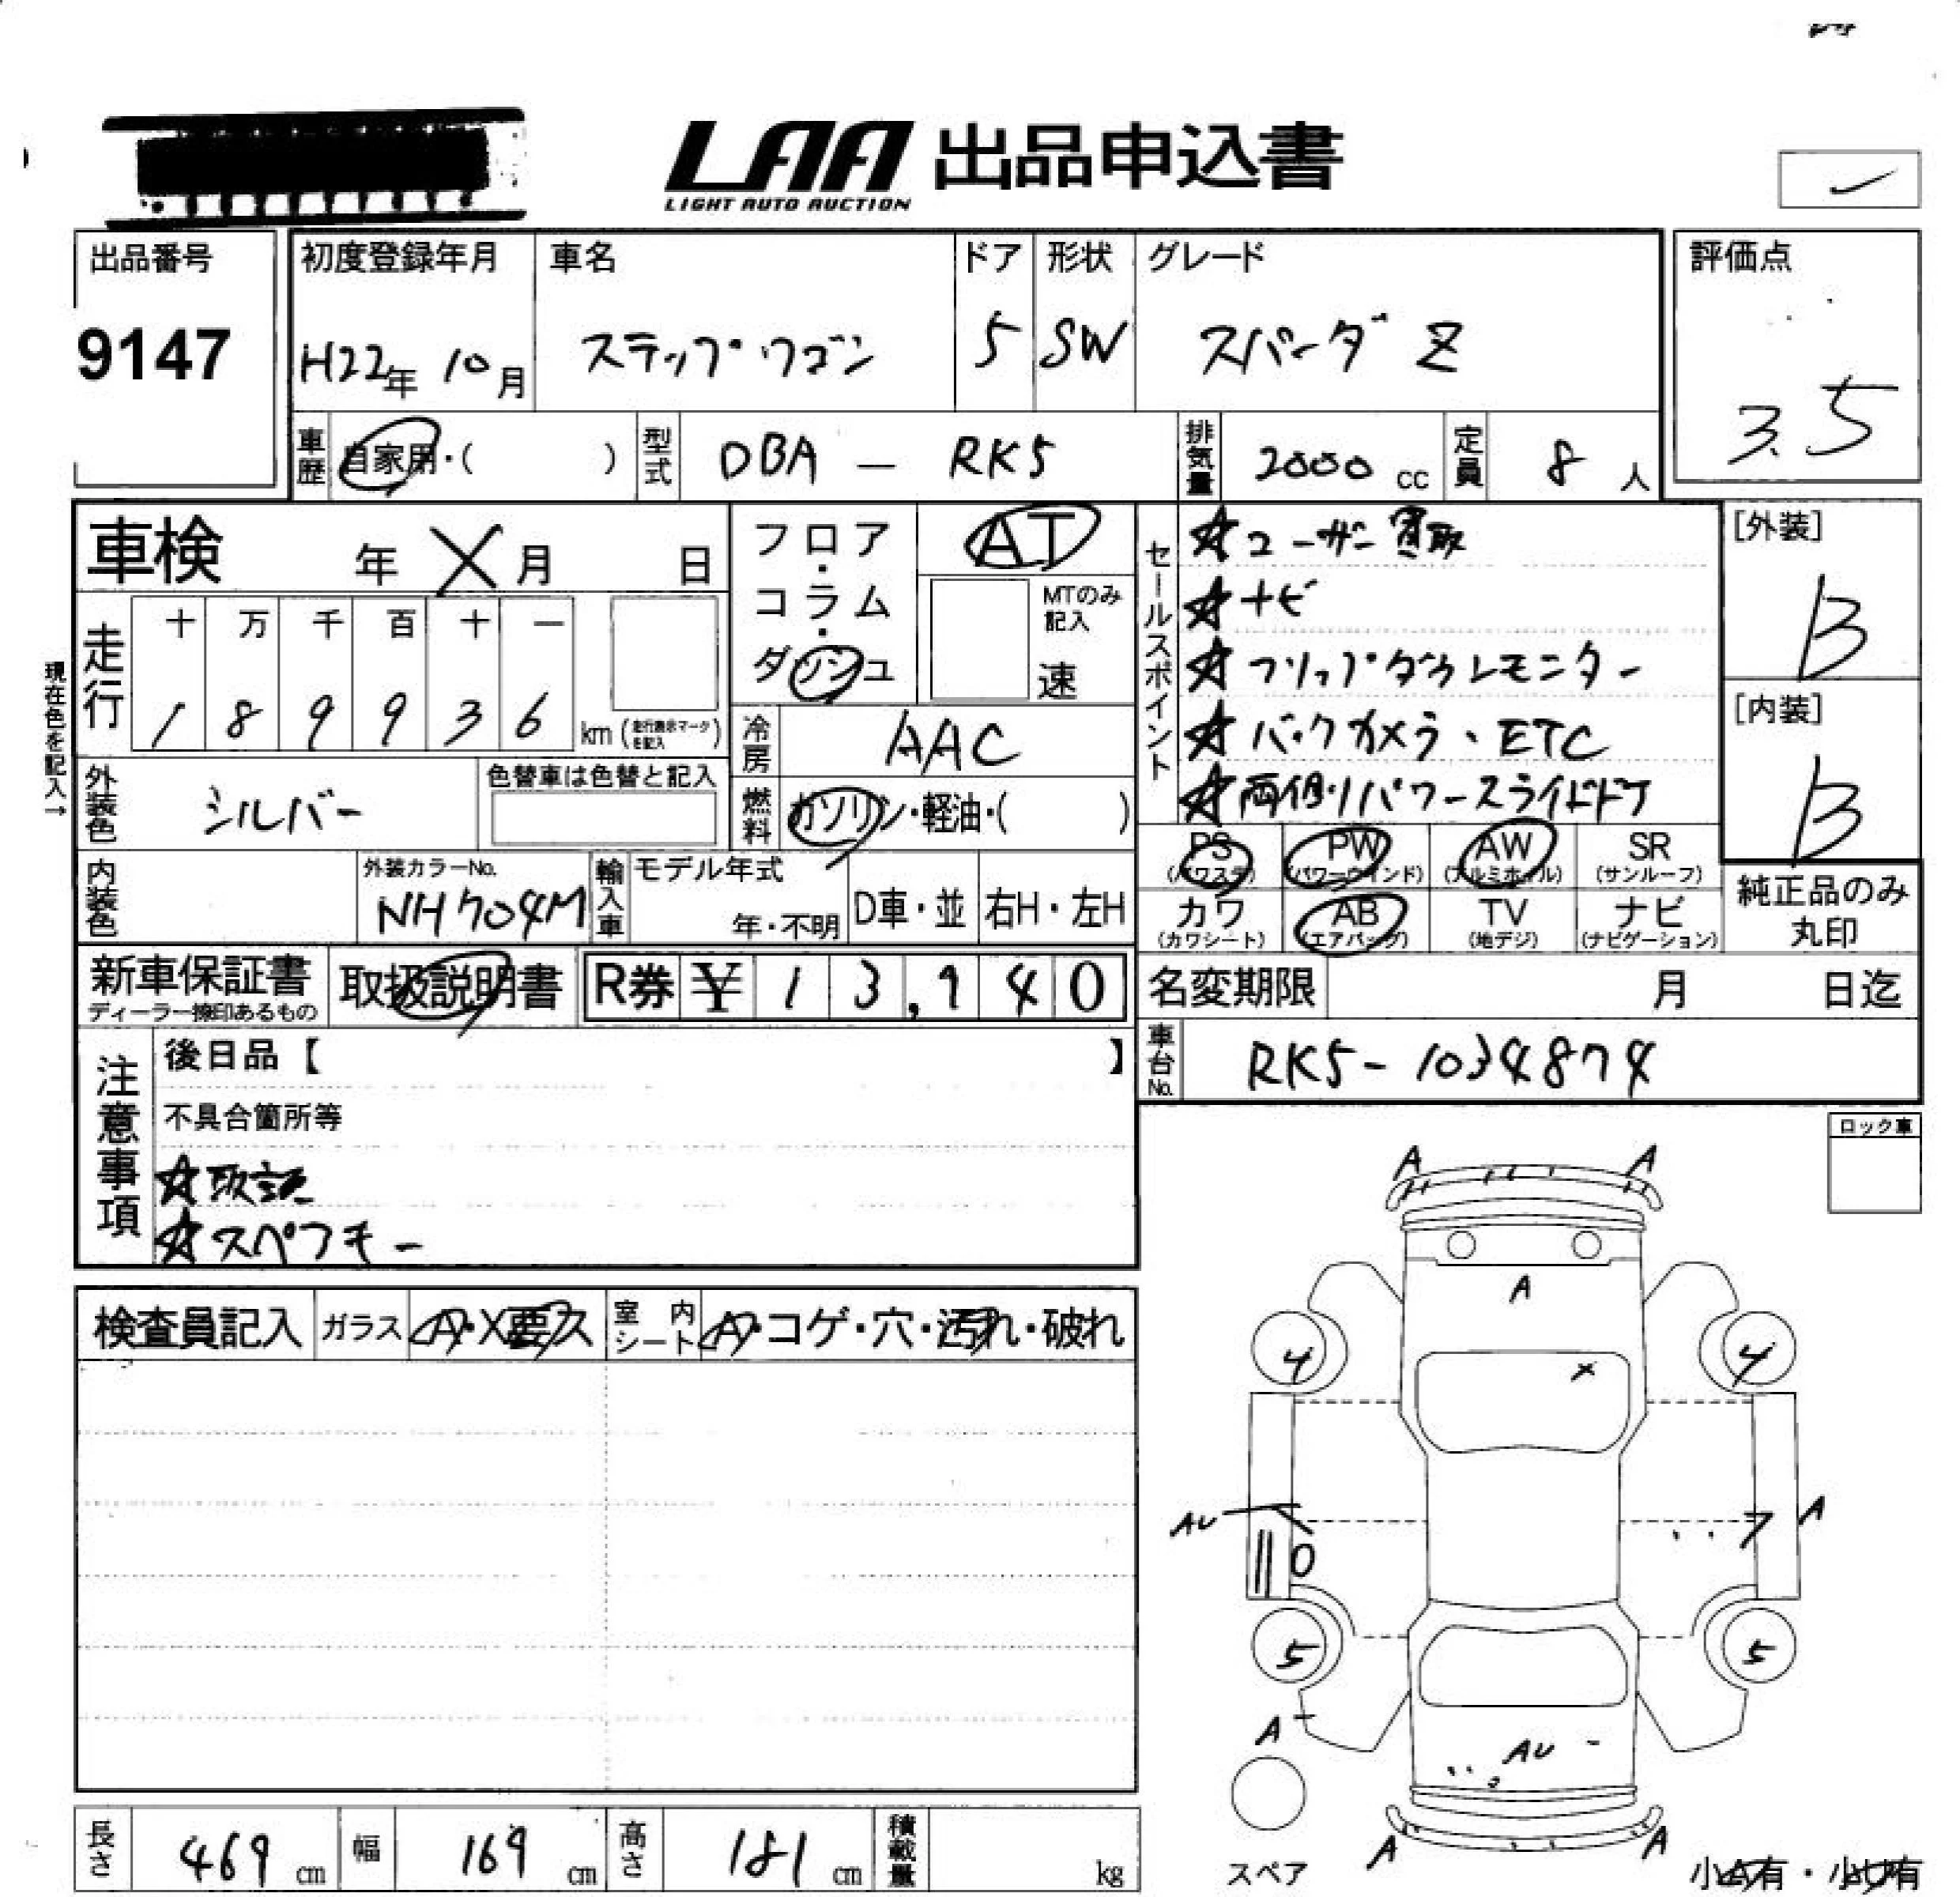 LAA 出品申込書
LIGHT AUTO AUCTION
出品番号
9147
初度登録年月
H22年 10月
車名
ステップワゴン
ドア
5
形状
SW
グレード
スパーダ Z
評価点
3.5
車歴
自家用・( )
型式
DBA — RK5
排気量
2000 cc
定員
8 人
車検 年 X 月 日
フロア・コラム・ダッシュ
AT
MTのみ記入
速
セールスポイント
☆ユーザー買取
☆ナビ
☆フリップダウンモニター
☆バックカメラ、ETC
☆両側パワースライドドア
[外装]
B
[内装]
B
現在色を記入→
走行
十 万 千 百 十 一
1 8 9 9 3 6 km (走行表示マークを記入)
冷房
AAC
外装色
シルバー
色替車は色替と記入
燃料
ガソリン・軽油・( )
PS
(パワステ)
PW
(パワーウインド)
AW
(アルミホイル)
SR
(サンルーフ)
カワ
(カワシート)
AB
(エアバッグ)
TV
(地デジ)
ナビ
(ナビゲーション)
純正品のみ
丸印
内装色
外装カラーNo.
NH704M
輸入車
モデル年式
年・不明
D車・並
右H・左H
新車保証書
ディーラー捺印あるもの
取扱説明書
R券 ¥ 13,940
名変期限 月 日迄
車台No.
RK5-1034874
注意事項
後日品【 】
不具合箇所等
☆取説
☆スペアキー
ロック車
検査員記入
ガラス
A・X要ス
室内シート
A・コゲ・穴・汚れ・破れ
A A
A
4 X 4
AU A
7
0
5 5
A
AU
A A
スペア
小A有・小U有
長さ 469 cm
幅 169 cm
高さ 181 cm
積載量 kg